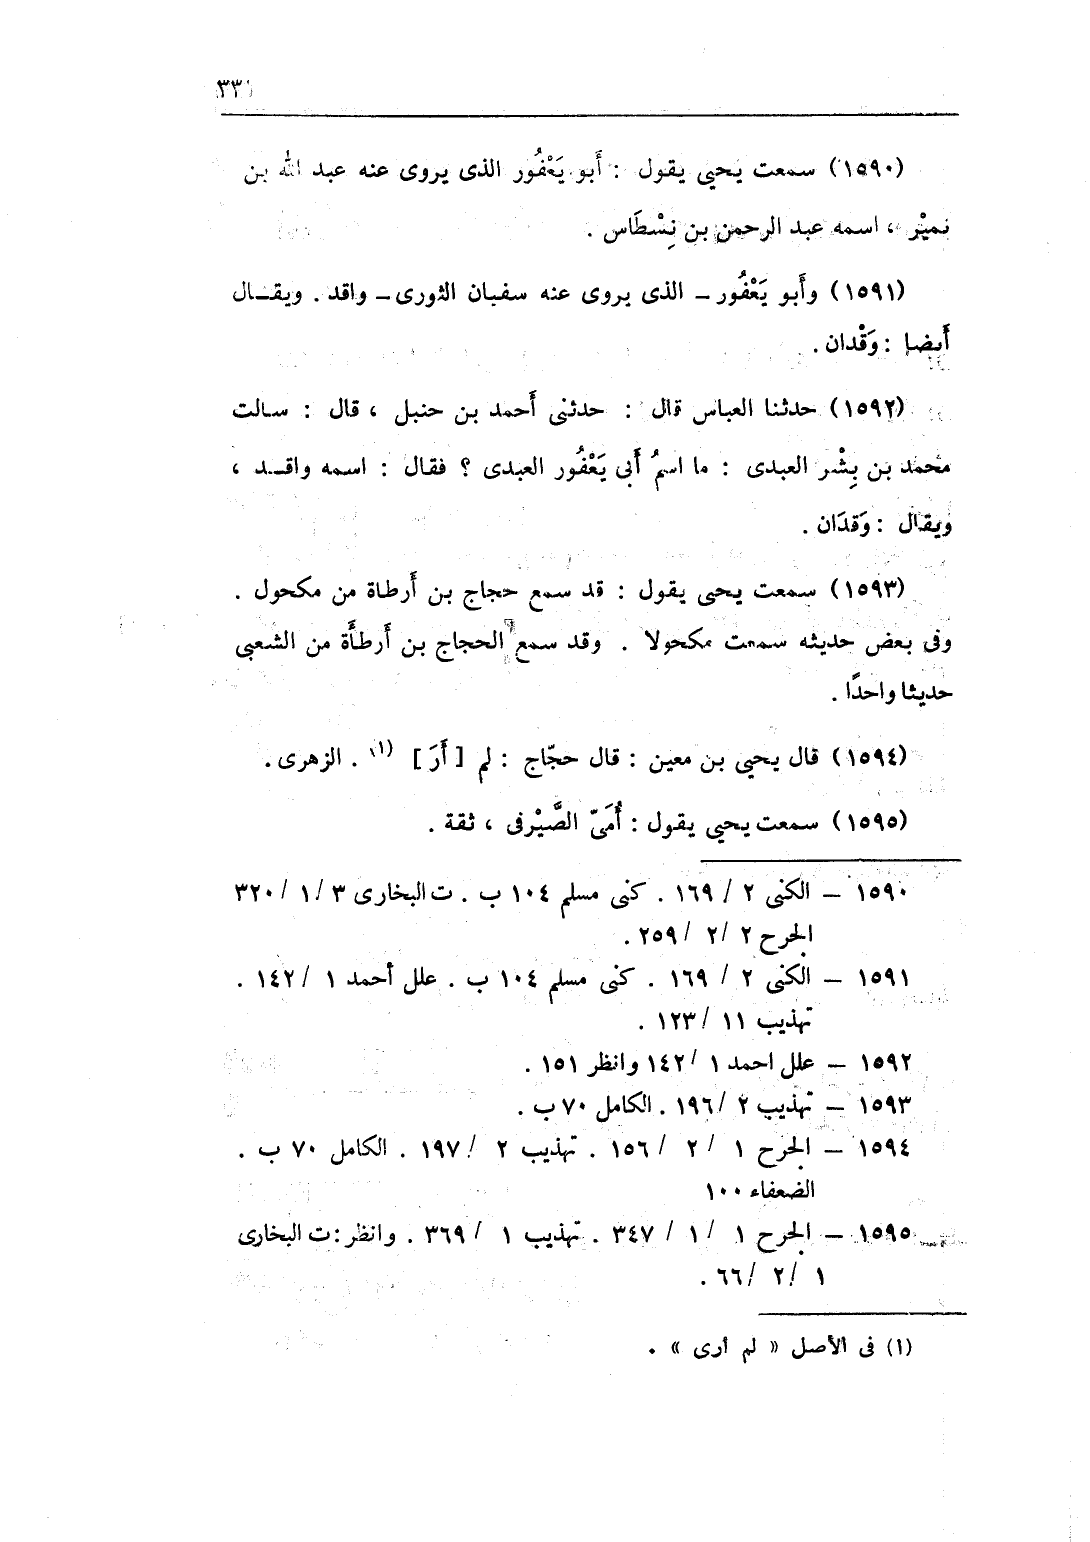 ٣٣١
(١٥٩٠) سمعت يحيى يقول : أَبو يَعْفُور الذى يروى عنه عبد الله بن
نميْر ، اسمه عبد الرحمن بن نِسْطَاس .
(١٥٩١) وأَبو يَعْفُور – الذى يروى عنه سفيان الثورى – واقد . ويقـال
أَيضا : وَقْدان .
(١٥٩٢) حدثنا العباس قال : حدثنى أَحمد بن حنبل ، قال : سالت
محمد بن بِشْر العبدى : ما اسمُ أَبى يَعْفُور العبدى ؟ فقال : اسمه واقـد ،
ويقال : وَقدَان .
(١٥٩٣) سمعت يحيى يقول : قد سمع حجاج بن أَرطاة من مكحول .
وفى بعض حديثه سمعت مكحولا . وقد سمع الحجاج بن أَرطأَة من الشعبى
حديثا واحدًا .
(١٥٩٤) قال يحيى بن معين : قال حجّاج : لم [ أَرَ ] (١) . الزهرى .
(١٥٩٥) سمعت يحيى يقول : أُمَىّ الصَّيْرفى ، ثقة .
١٥٩٠ – الكنى ٢ / ١٦٩ . كنى مسلم ١٠٤ ب . ت البخارى ٣ / ١ / ٣٢٠
الجرح ٢ / ٢ / ٢٥٩ .
١٥٩١ – الكنى ٢ / ١٦٩ . كنى مسلم ١٠٤ ب . علل أحمد ١ / ١٤٢ .
تهذيب ١١ / ١٢٣ .
١٥٩٢ – علل احمد ١ / ١٤٢ وانظر ١٥١ .
١٥٩٣ – تهذيب ٢ / ١٩٦ . الكامل ٧٠ ب .
١٥٩٤ – الجرح ١ / ٢ / ١٥٦ . تهذيب ٢ / ١٩٧ . الكامل ٧٠ ب .
الضعفاء ١٠٠
١٥٩٥ – الجرح ١ / ١ / ٣٤٧ . تهذيب ١ / ٣٦٩ . وانظر : ت البخارى
١ / ٢ / ٦٦ .
(١) فى الأصل « لم أرى » .